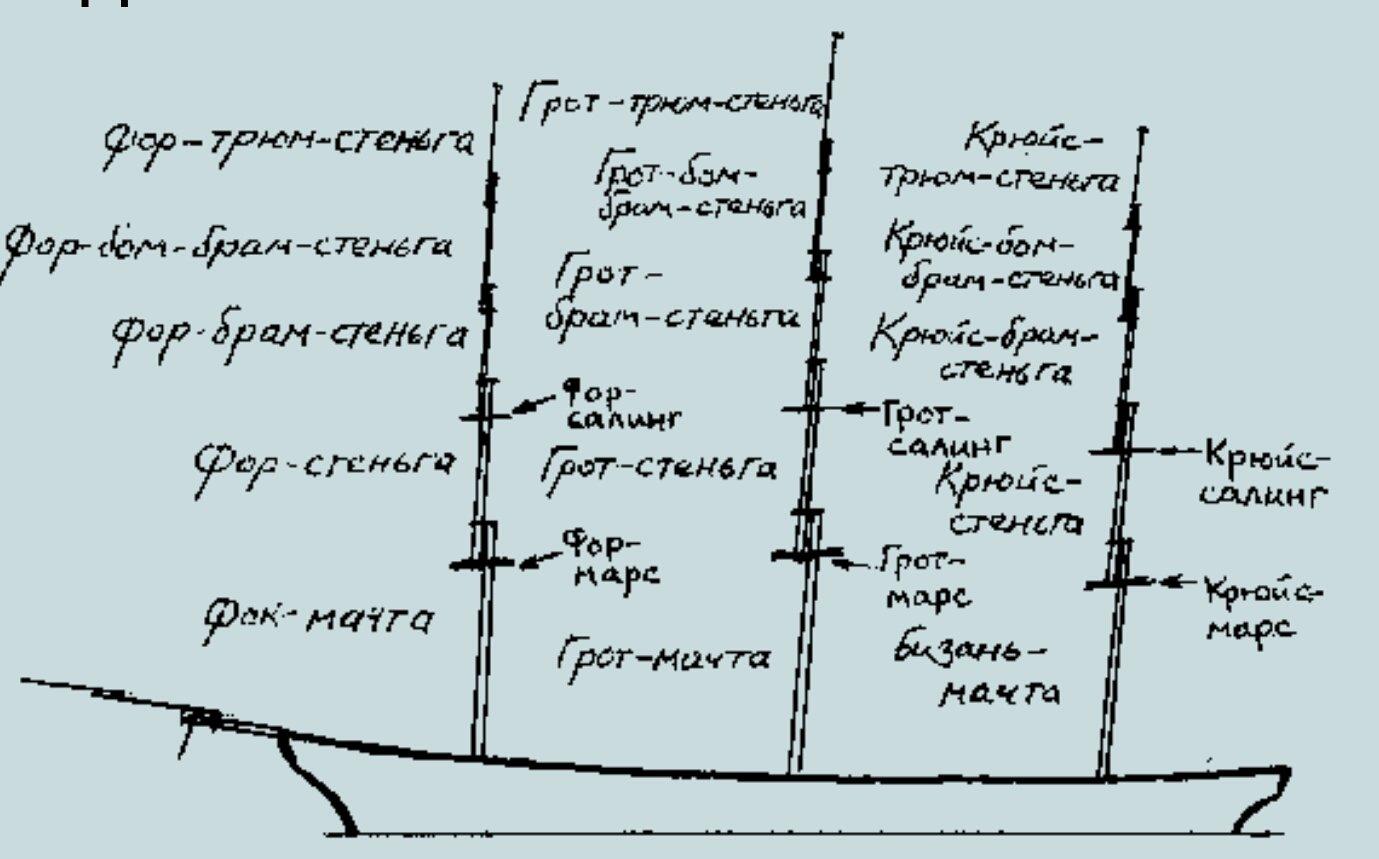 Фор-трюм-стеньга
Фор-бом-брам-стеньга
Фор-брам-стеньга
Фор-салинг
Фор-стеньга
Фор-марс
Фок-мачта
Грот-трюм-стеньга
Грот-бом-
брам-стеньга
Грот-
брам-стеньга
Грот-
салинг
Грот-стеньга
Грот-
марс
Грот-мачта
Крюйс-
трюм-стеньга
Крюйс-бом-
брам-стеньга
Крюйс-брам-
стеньга
Крюйс-
салинг
Крюйс-
стеньга
Крюйс-
марс
Бизань-
мачта